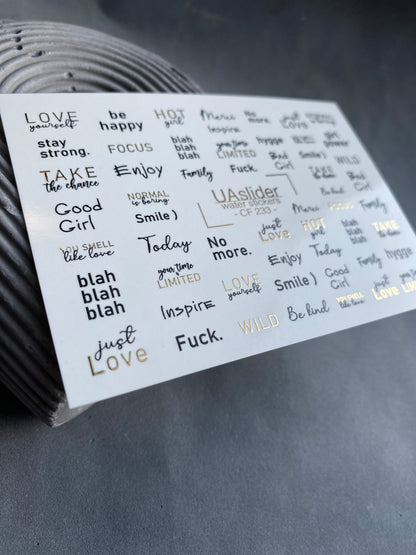 LOVE yourself
be happy
HOT girl
Merci
No more.
just Love
Inspire
girl power
stay strong.
FOCUS
blah blah blah
your time LIMITED
hygge
Bad Girl
Smile)
TAKE the chance
Enjoy
Family
Fuck.
Bad Girl
WILD
Good Girl
NORMAL is boring
Smile)
UAslider
water stickers
- CF 233 -
Be kind
Merci
FOCUS
Family
YOU SMELL like love
Today
No more.
just Love
HOT girl
blah blah blah
TAKE the chance
blah blah blah
your time LIMITED
LOVE yourself
Enjoy
Today
Family
hygge
Inspire
Smile)
Good Girl
just Love
Fuck.
WILD
Be kind
YOU SMELL like love
Love
LIM